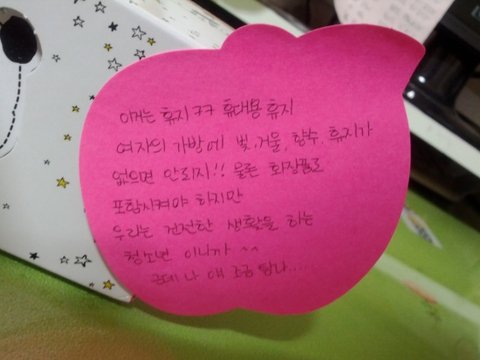 이거는 휴지ㅋㅋ 휴대용 휴지
여자의 가방에 빗, 거울, 향수, 휴지가
없으면 안되지!! 물론 화장품도
포함시켜야 하지만
우리는 건전한 생활을 하는
청소년 이니까 ^^
근데 나 얘 조금 탐나....